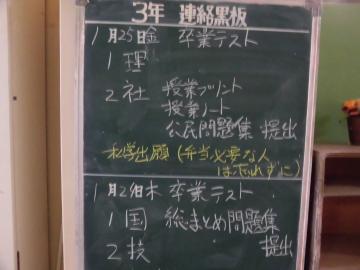 3年 連絡黒板
1月25日金 卒業テスト
1 理
2 社 授業プリント
授業ノート
公民問題集 提出
私学出願(弁当必要な人
は忘れずに)
1月24日木 卒業テスト
1 国 総まとめ問題集
2 技 提出